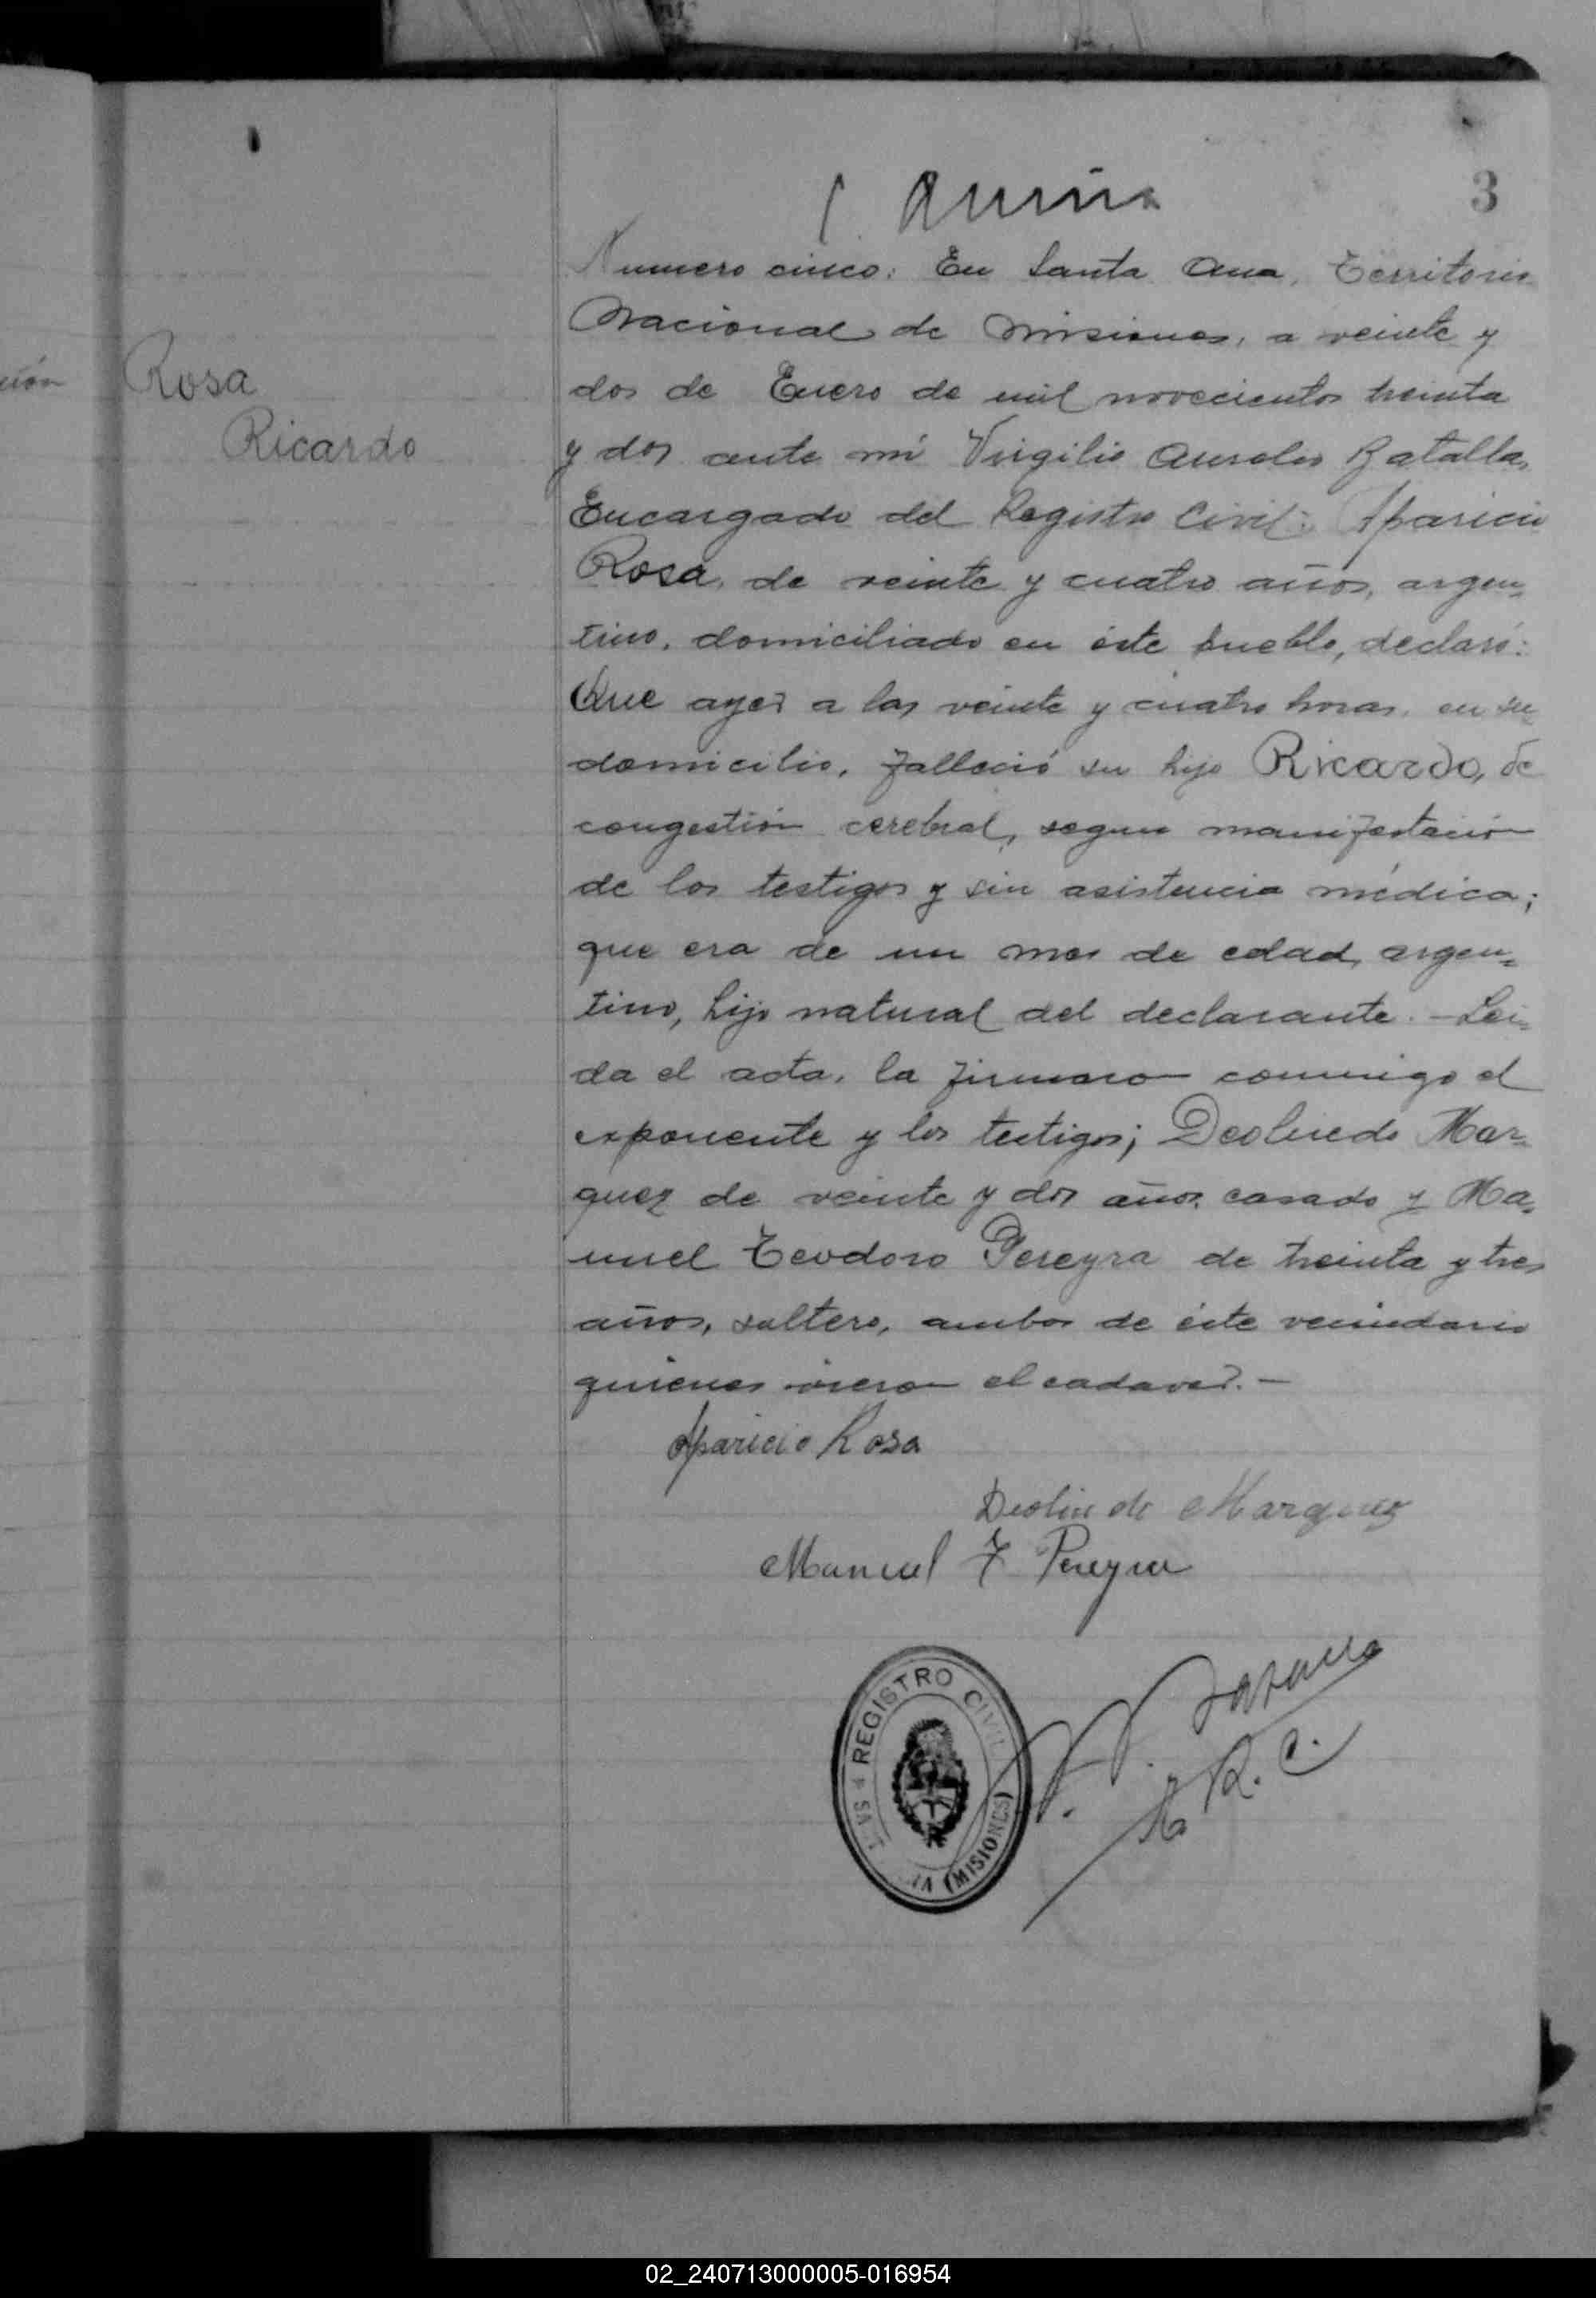 3
Numero cinco: En Santa Ana, Territorio
Nacional de Misiones, a veinte y
dos de Enero de mil novecientos treinta
y dos ante mi Virgilio Aurelio Batalla,
Encargado del Registro Civil: Aparicio
Rosa, de veinte y cuatro años, argen=
tino, domiciliado en éste pueblo, declaró:
Que ayer a las veinte y cuatro horas, en su
domicilio, falleció su hijo Ricardo, de
congestión cerebral, segun manifestación
de los testigos y sin asistencia médica;
que era de un mes de edad, argen=
tino, hijo natural del declarante. - Lei=
da el acta, la firmaron conmigo el
exponente y los testigos; Deolindo Mar=
quez de veinte y dos años, casado y Ma=
nuel Teodoro Pereyra de treinta y tres
años, soltero, ambos de éste vecindario
quienes vieron el cadaver. -
Rosa
Ricardo
ción
Aparicio Rosa
Deolindo Marquez
Manuel T Pereyra
REGISTRO CIVIL
SANTA ANA (MISIONES)
E. R. C.
02_240713000005-016954